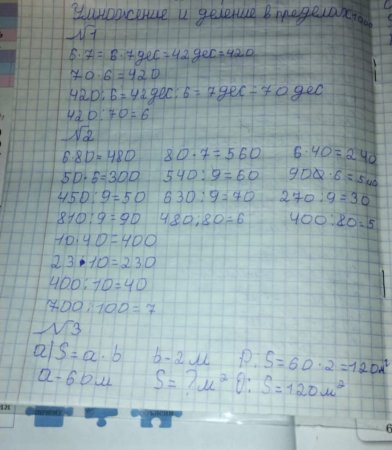 Умножение и деление в пределах 1000
№1
6·7=6·7дес=42дес=420
70·6=420
420:6=42дес:6=7дес=70дес
420:70=6
№2
6·80=480 80·7=560 6·40=240
50·6=300 540:9=60 90·6=540
450:9=50 630:9=70 270:9=30
810:9=90 480:80=6 400:80=5
10·40=400
23·10=230
400:10=40
700:100=7
№3
а) S=a·b b-2м Р: S=60·2=120м²
a-60м S=?м² О: S=120м²